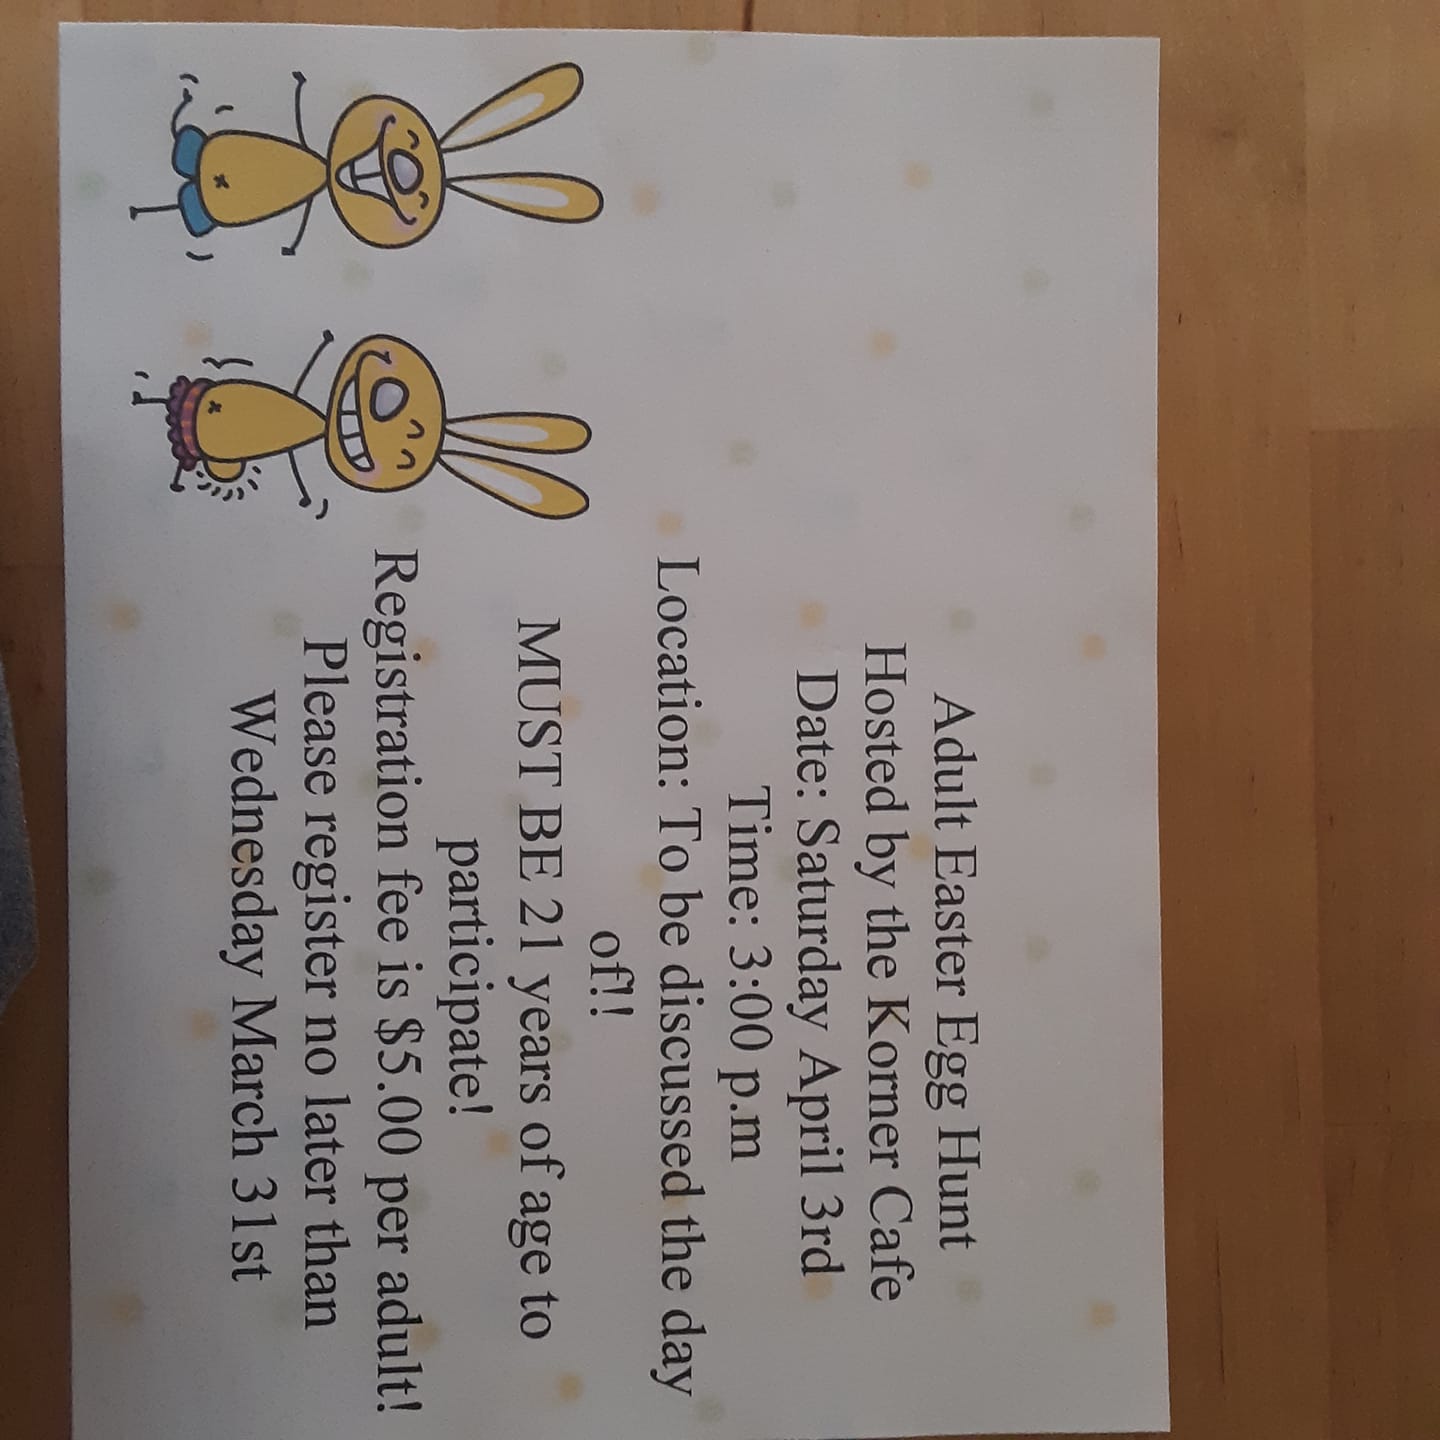 Adult Easter Egg Hunt
Hosted by the Korner Cafe
Date: Saturday April 3rd
Time: 3:00 p.m
Location: To be discussed the day
of!!
MUST BE 21 years of age to
participate!
Registration fee is $5.00 per adult!
Please register no later than
Wednesday March 31st